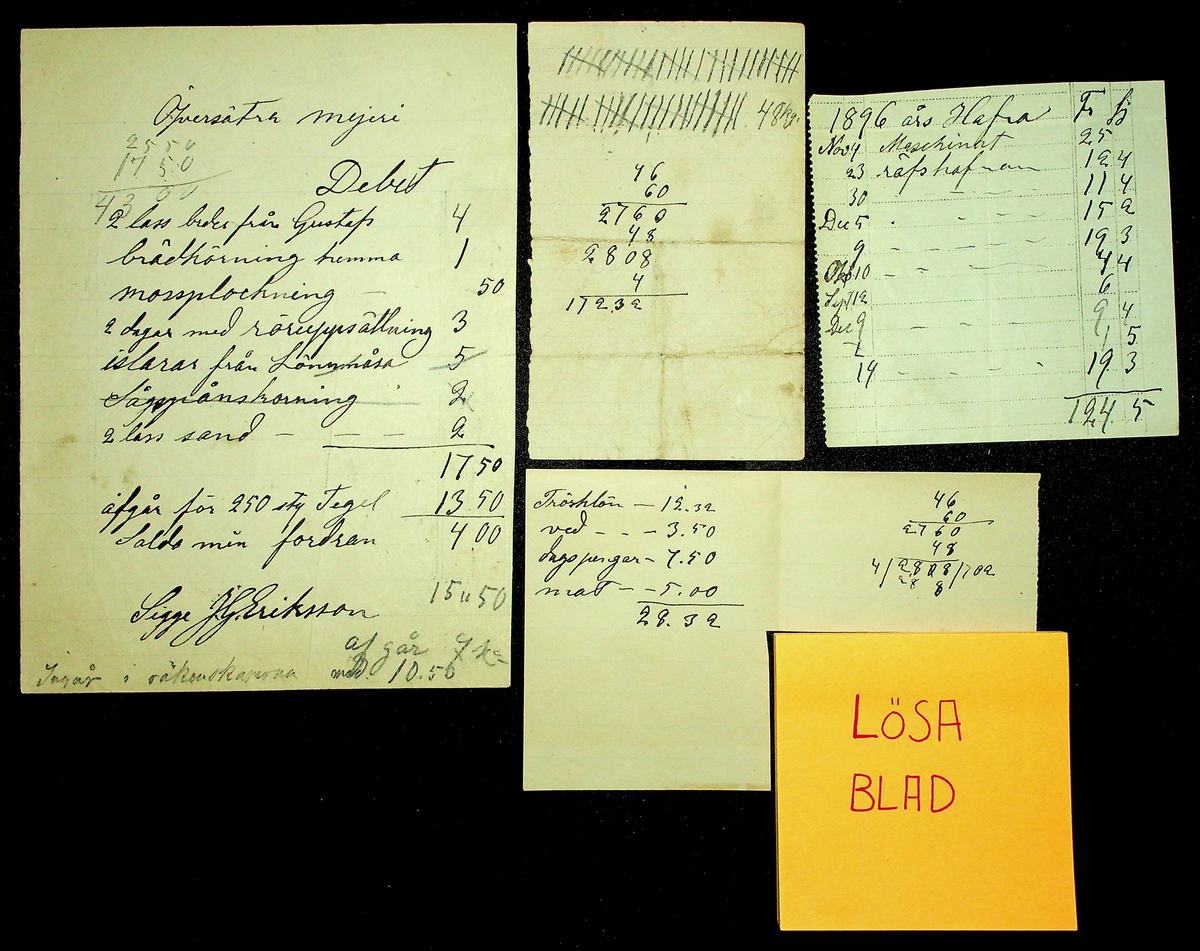 Öfversätra mejeri
25 50
17 50
43 00
Debet
2 lass bräder från Gustafs 4
brädkörning hemma 1
mossplockning — 50
2 dagar med röruppsättning 3
från 5
Sågspånskörning 2
2 lass sand — — — 2
17 50
afgår för 250 sty Tegel 13.50
Saldo min fordran 4 00
Sigge J.G. Eriksson
15 50
af går
Ingår i räkenskaperna med 10.50
48 kg.
46
60
2760
48
2808
4
17232
1896 års Hafra T Sj
Nov 4 Maschinert 25
23 12 4
30 11 4
Dec 5 15 2
9 19 3
10 4 4
Sept 12 6
Dec 9 9 4
1 5
14 — — — 19 3
124 5
Trösklön — 12.32
ved - - - 3.50
dagspengar - 7.50
mat - - 5.00
28.32
46
60
2760
48
4/2808/702
28 8
LÖSA
BLAD